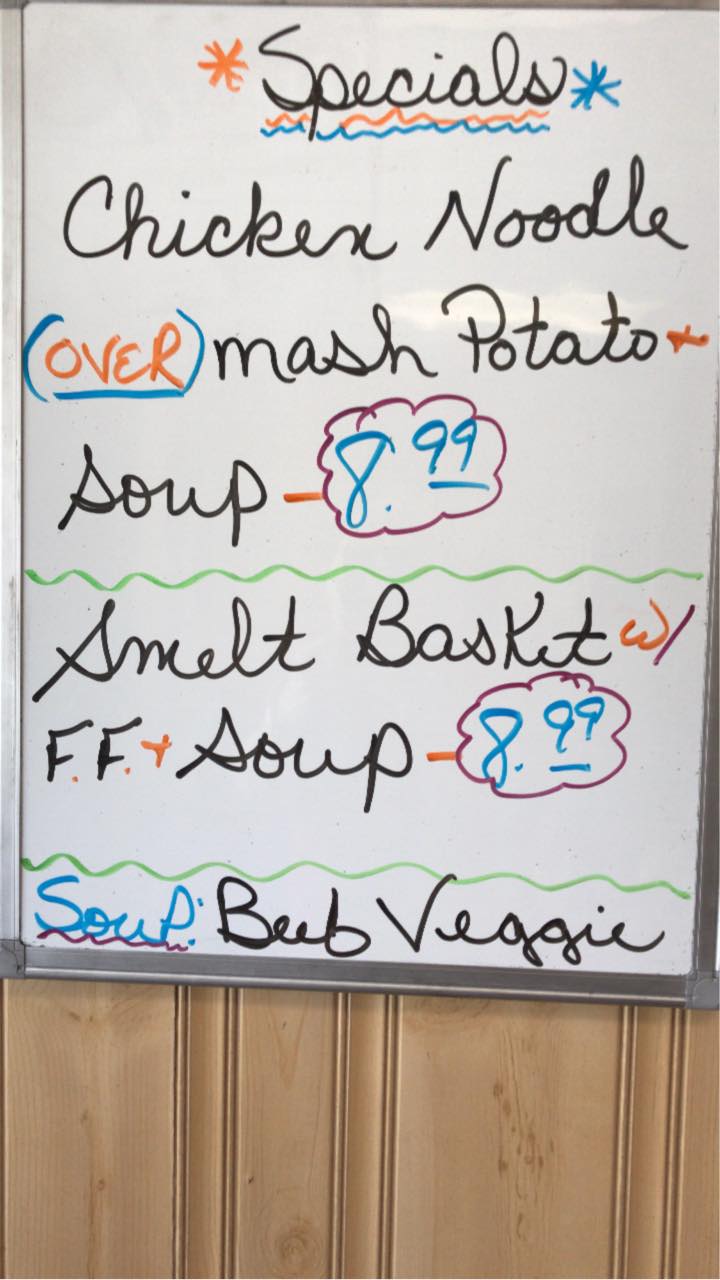 * Specials *
Chicken Noodle
(OVER) mash Potato +
Soup - 8.99
Smelt Basket w/
F.F. + Soup - 8.99
Soup: Beef Veggie